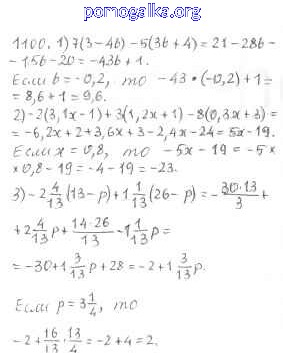 pomogalka.org
1100. 1) 7(3-4b)-5(3b+4)=21-28b-
-15b-20=-43b+1.
Если b=-0,2, то -43·(-0,2)+1=
=8,6+1=9,6.
2)-2(3,1x-1)+3(1,2x+1)-8(0,3x+3)=
=-6,2x+2+3,6x+3-2,4x-24=5x-19.
Если x=0,8, то -5x-19=-5×
×0,8-19=-4-19=-23.
3)-2 4/13(13-p)+1 1/13(26-p)=-30·13/3+
+2 4/13 p+14·26/13-1 1/13 p=
=-30+1 3/13 p+28=-2+1 3/13 p.
Если p=3 1/4, то
-2+16/13·13/4=-2+4=2.